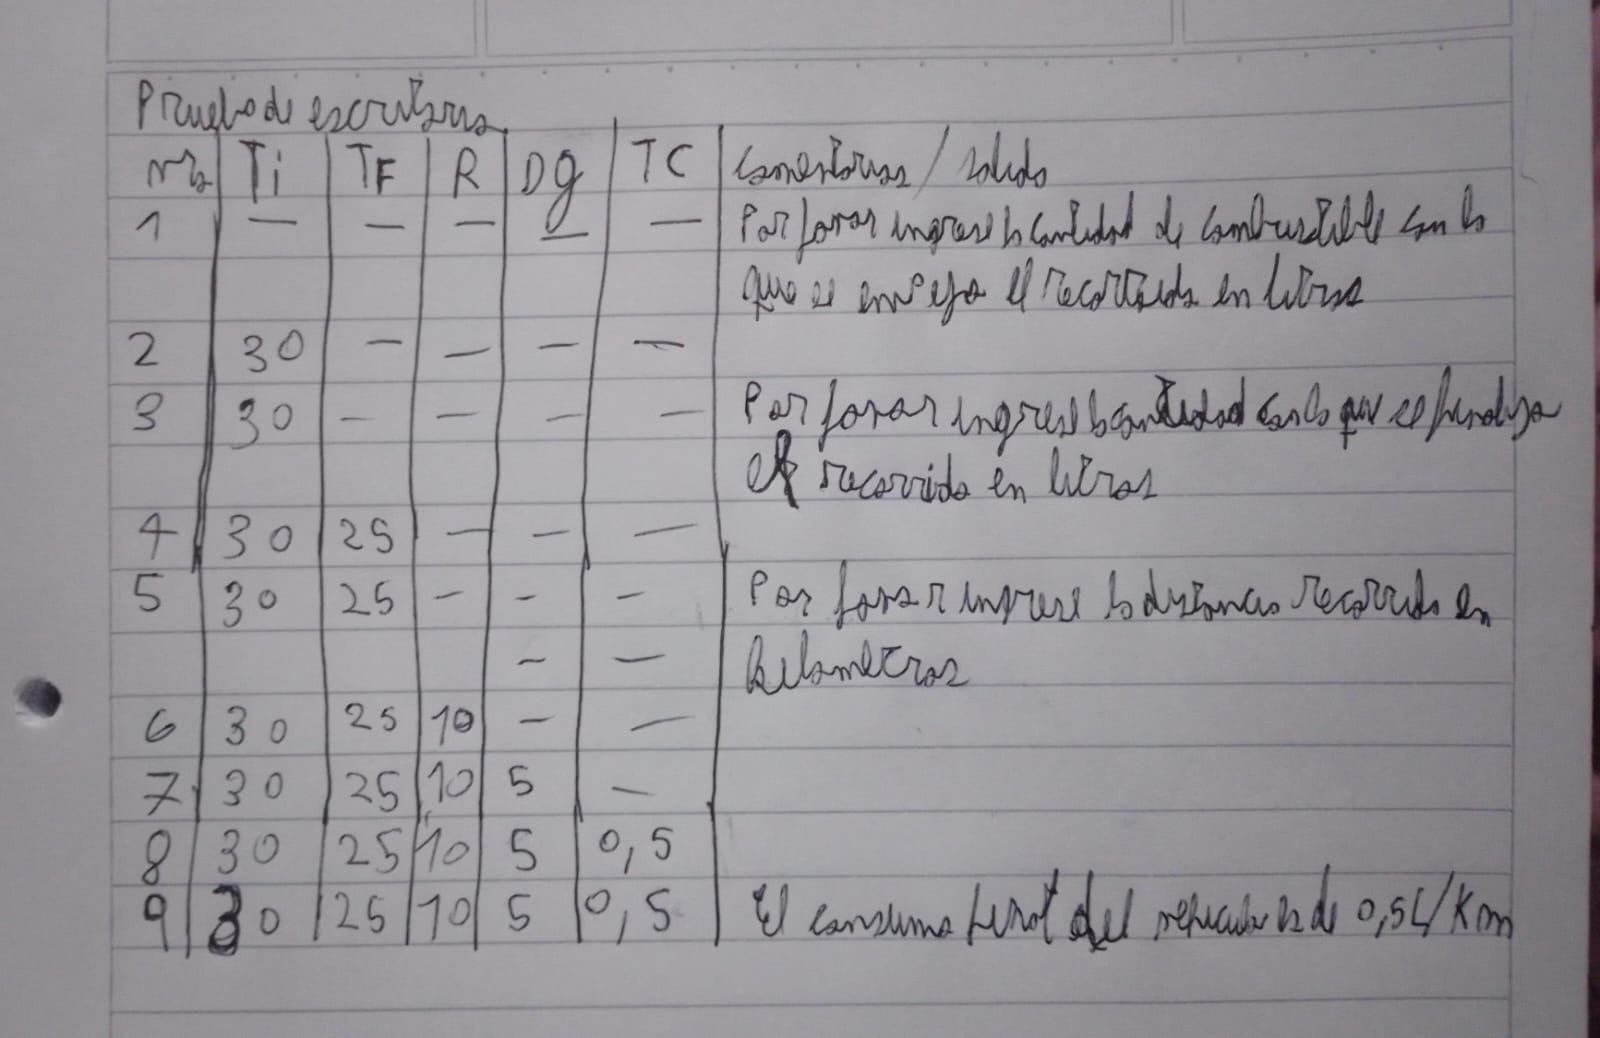 Prueba de escritorio
Ti TF R Dg TC Comentarios / salida
1 — — — — — Por favor ingrese la cantidad de combustible con la
que se empeza el recorrido en litros
2 30 — — — —
3 30 — — — — Por favor ingrese la cantidad con la que se finaliza
el recorrido en litros
4 30 25 — — —
5 30 25 - - - Por favor ingrese la distancia recorrida en
- — kilometros
6 30 25 10 - —
7 30 25 10 5 —
8 30 25 10 5 0,5
9 30 25 10 5 0,5 El consumo final del vehiculo es de 0,5L/Km